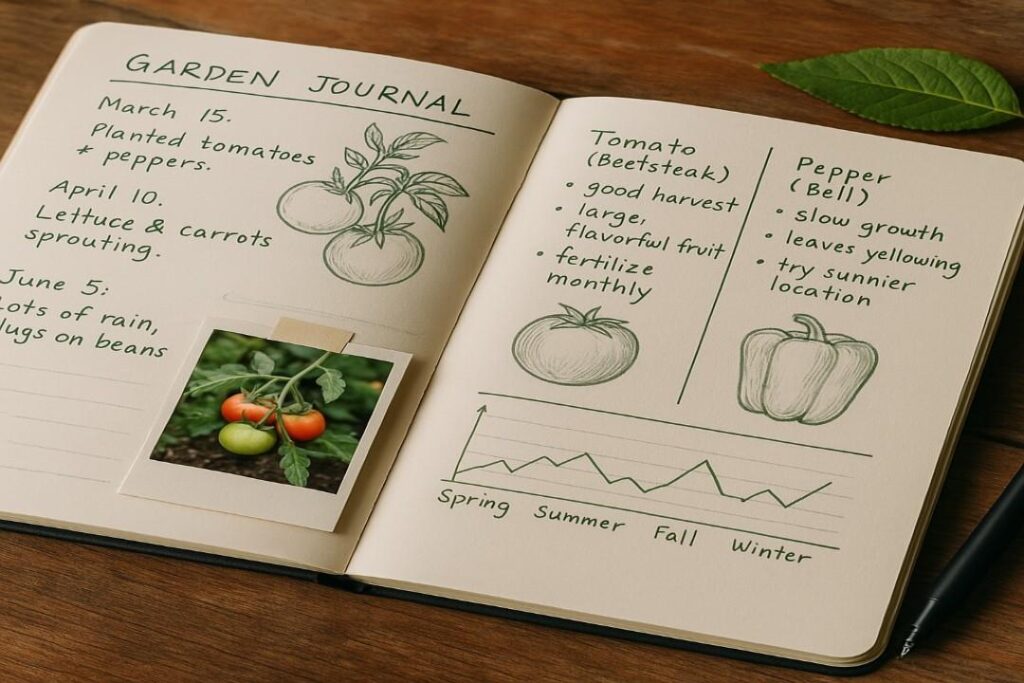 GARDEN JOURNAL
March 15.
Planted tomatoes
* peppers.
April 10.
Lettuce & carrots
sprouting.
June 5:
Lots of rain,
lugs on beans
Tomato
(Beetsteak)
• good harvest
• large,
flavorful fruit
• fertilize
monthly
Pepper
(Bell)
• slow growth
• leaves yellowing
• try sunnier
location
Spring Summer Fall Winter